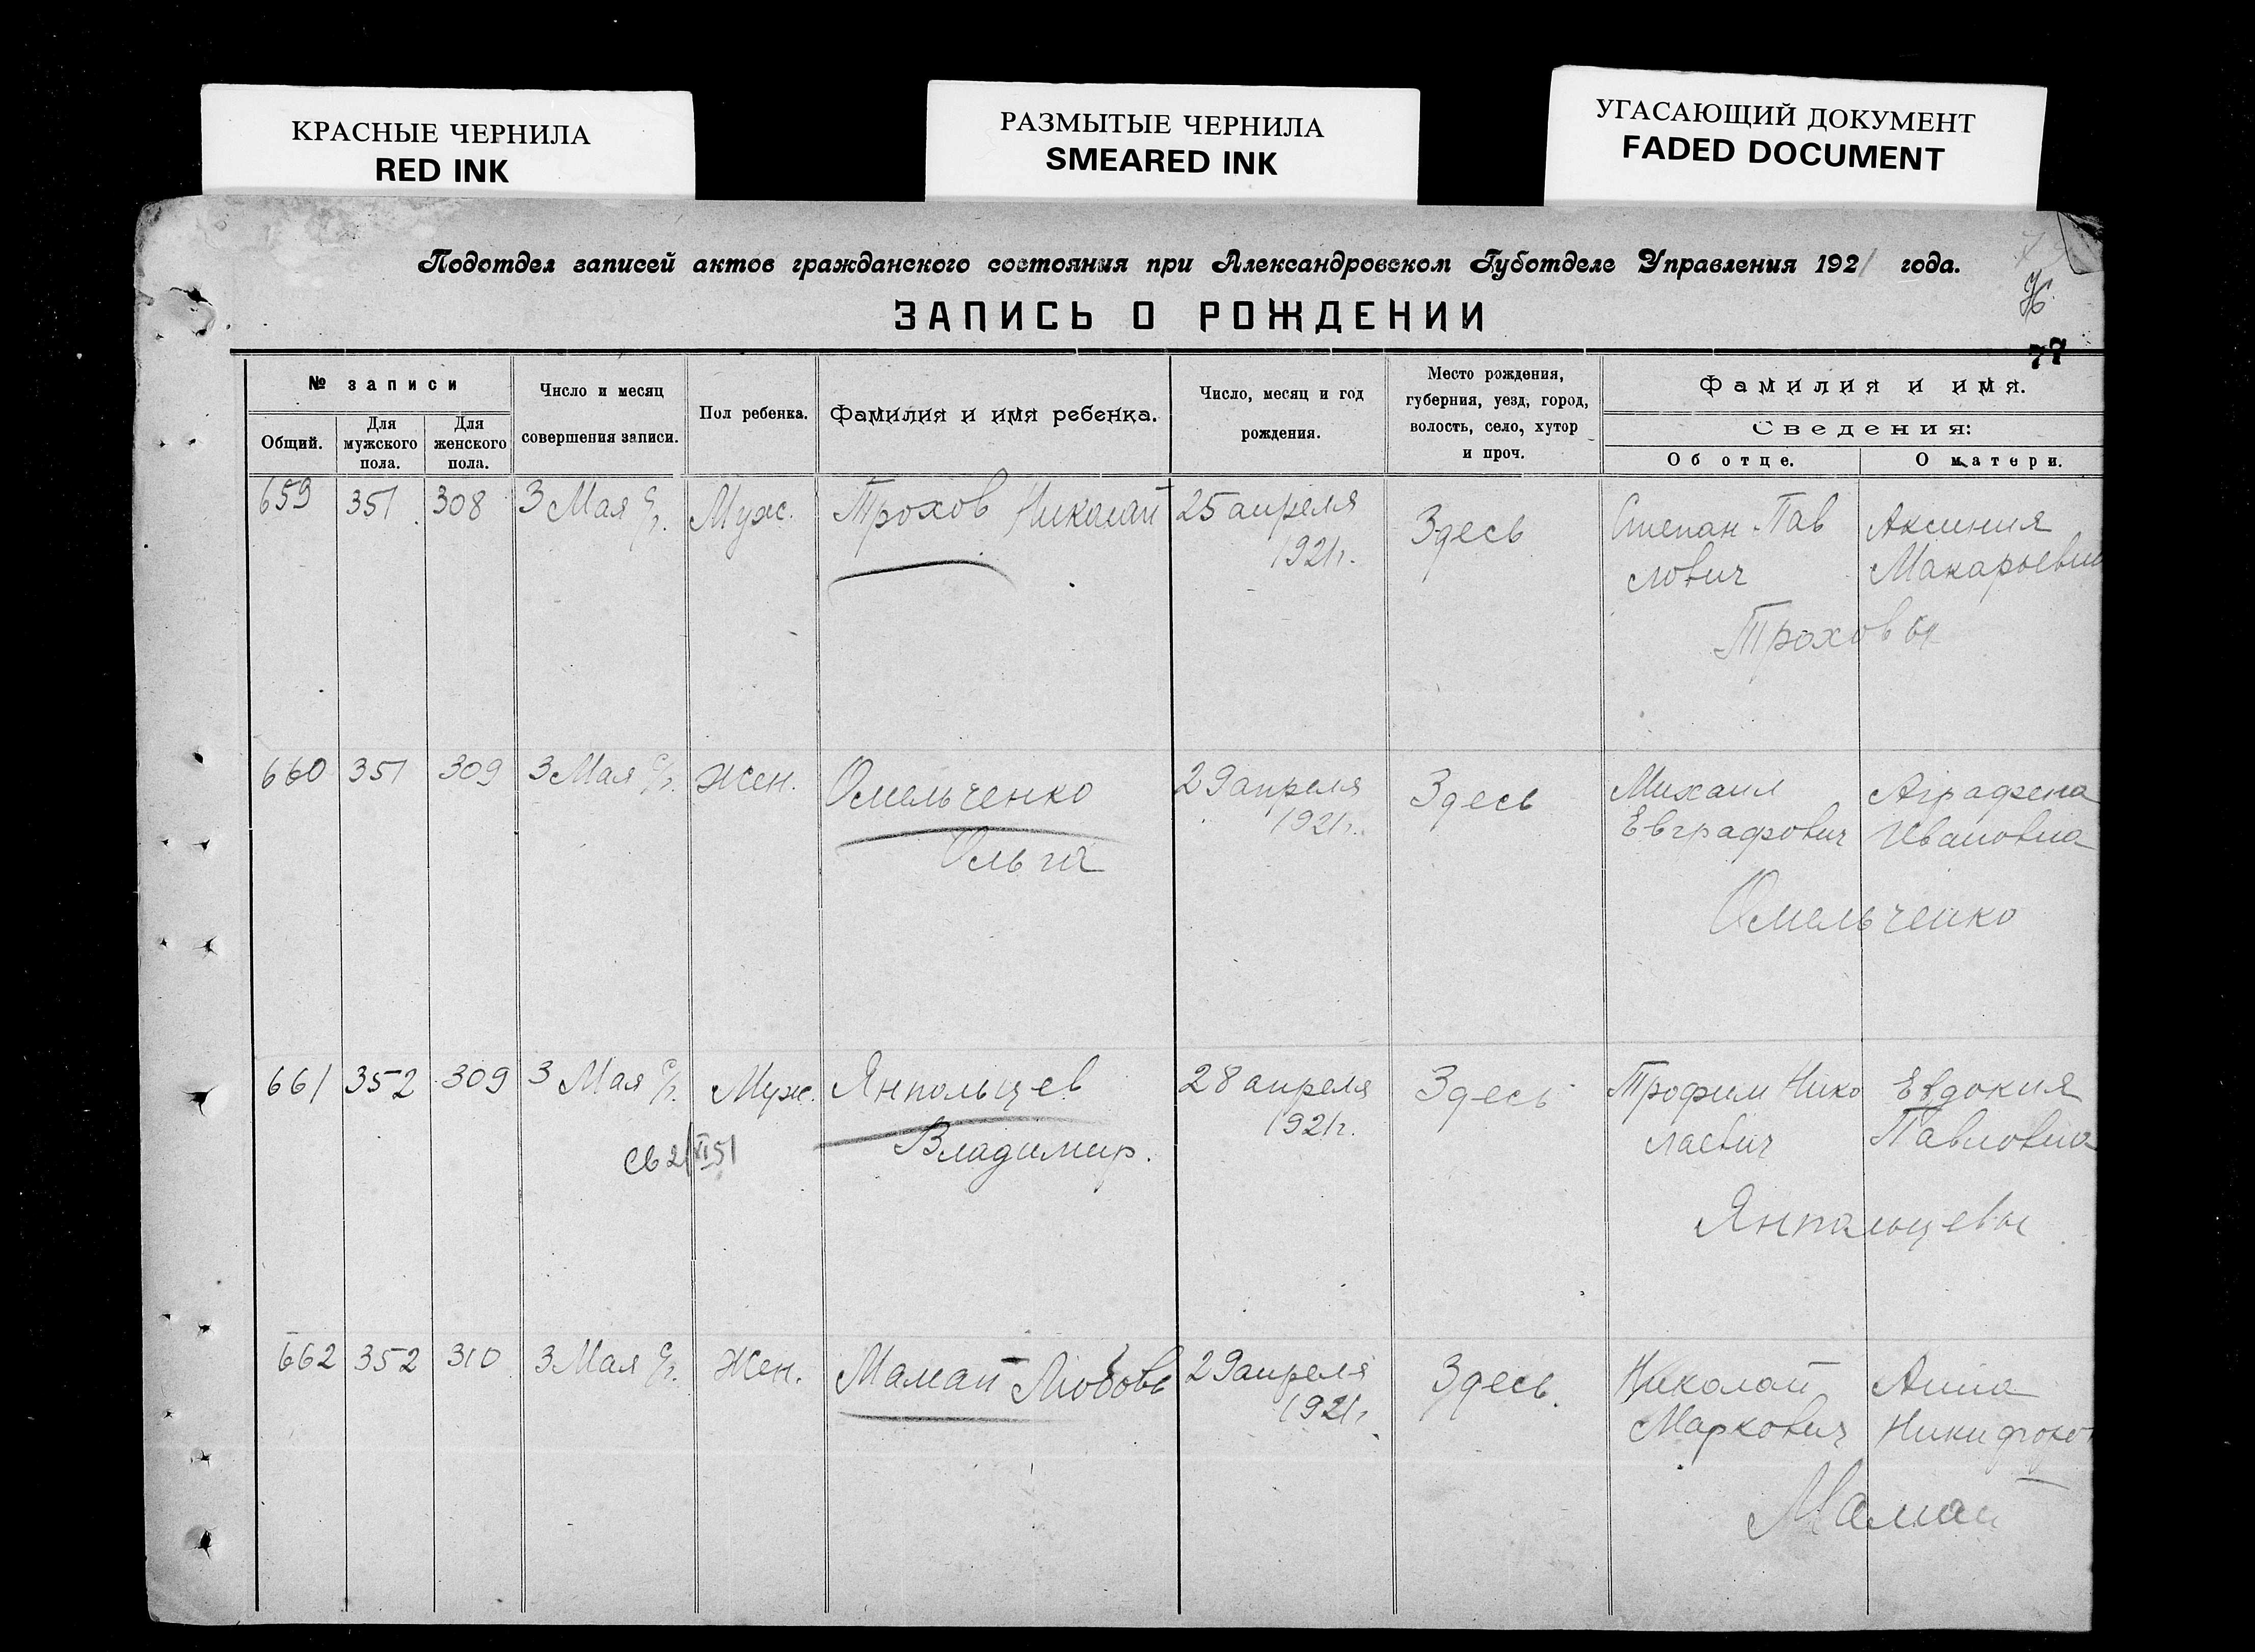 КРАСНЫЕ ЧЕРНИЛА
RED INK
РАЗМЫТЫЕ ЧЕРНИЛА
SMEARED INK
УГАСАЮЩИЙ ДОКУМЕНТ
FADED DOCUMENT
Подотдел записей актов гражданского состояния при Александровском Губотделе Управления 1921 года.
ЗАПИСЬ О РОЖДЕНИИ
77
№ записи
Общий.
Для мужского пола.
Для женского пола.
Число и месяц совершения записи.
Пол ребенка.
Фамилия и имя ребенка.
Число, месяц и год рождения.
Место рождения, губерния, уезд, город, волость, село, хутор и проч.
Фамилия и имя.
Сведения:
Об отце.
О матери.
659 351 308 3 Мая с/г. Муж. Трохов Николай 25 апреля 1921г. Здесь Степан Павлович Аксиния Макарьевна
Троховы
660 351 309 3 Мая с/г. Жен. Омельченко Ольга 29 апреля 1921г. Здесь Михаил Евграфович Аграфена Ивановна
Омельченко
661 352 309 3 Мая с/г. Муж. Янпольцев Владимир. 28 апреля 1921г. Здесь Трофим Николаевич Евдокия Павловна
Св 21/XI 51
Янпольцевы
662 352 310 3 Мая с/г. Жен. Мамай Любовь 29 апреля 1921г. Здесь. Николай Маркович Анна Никифоров
Мамай